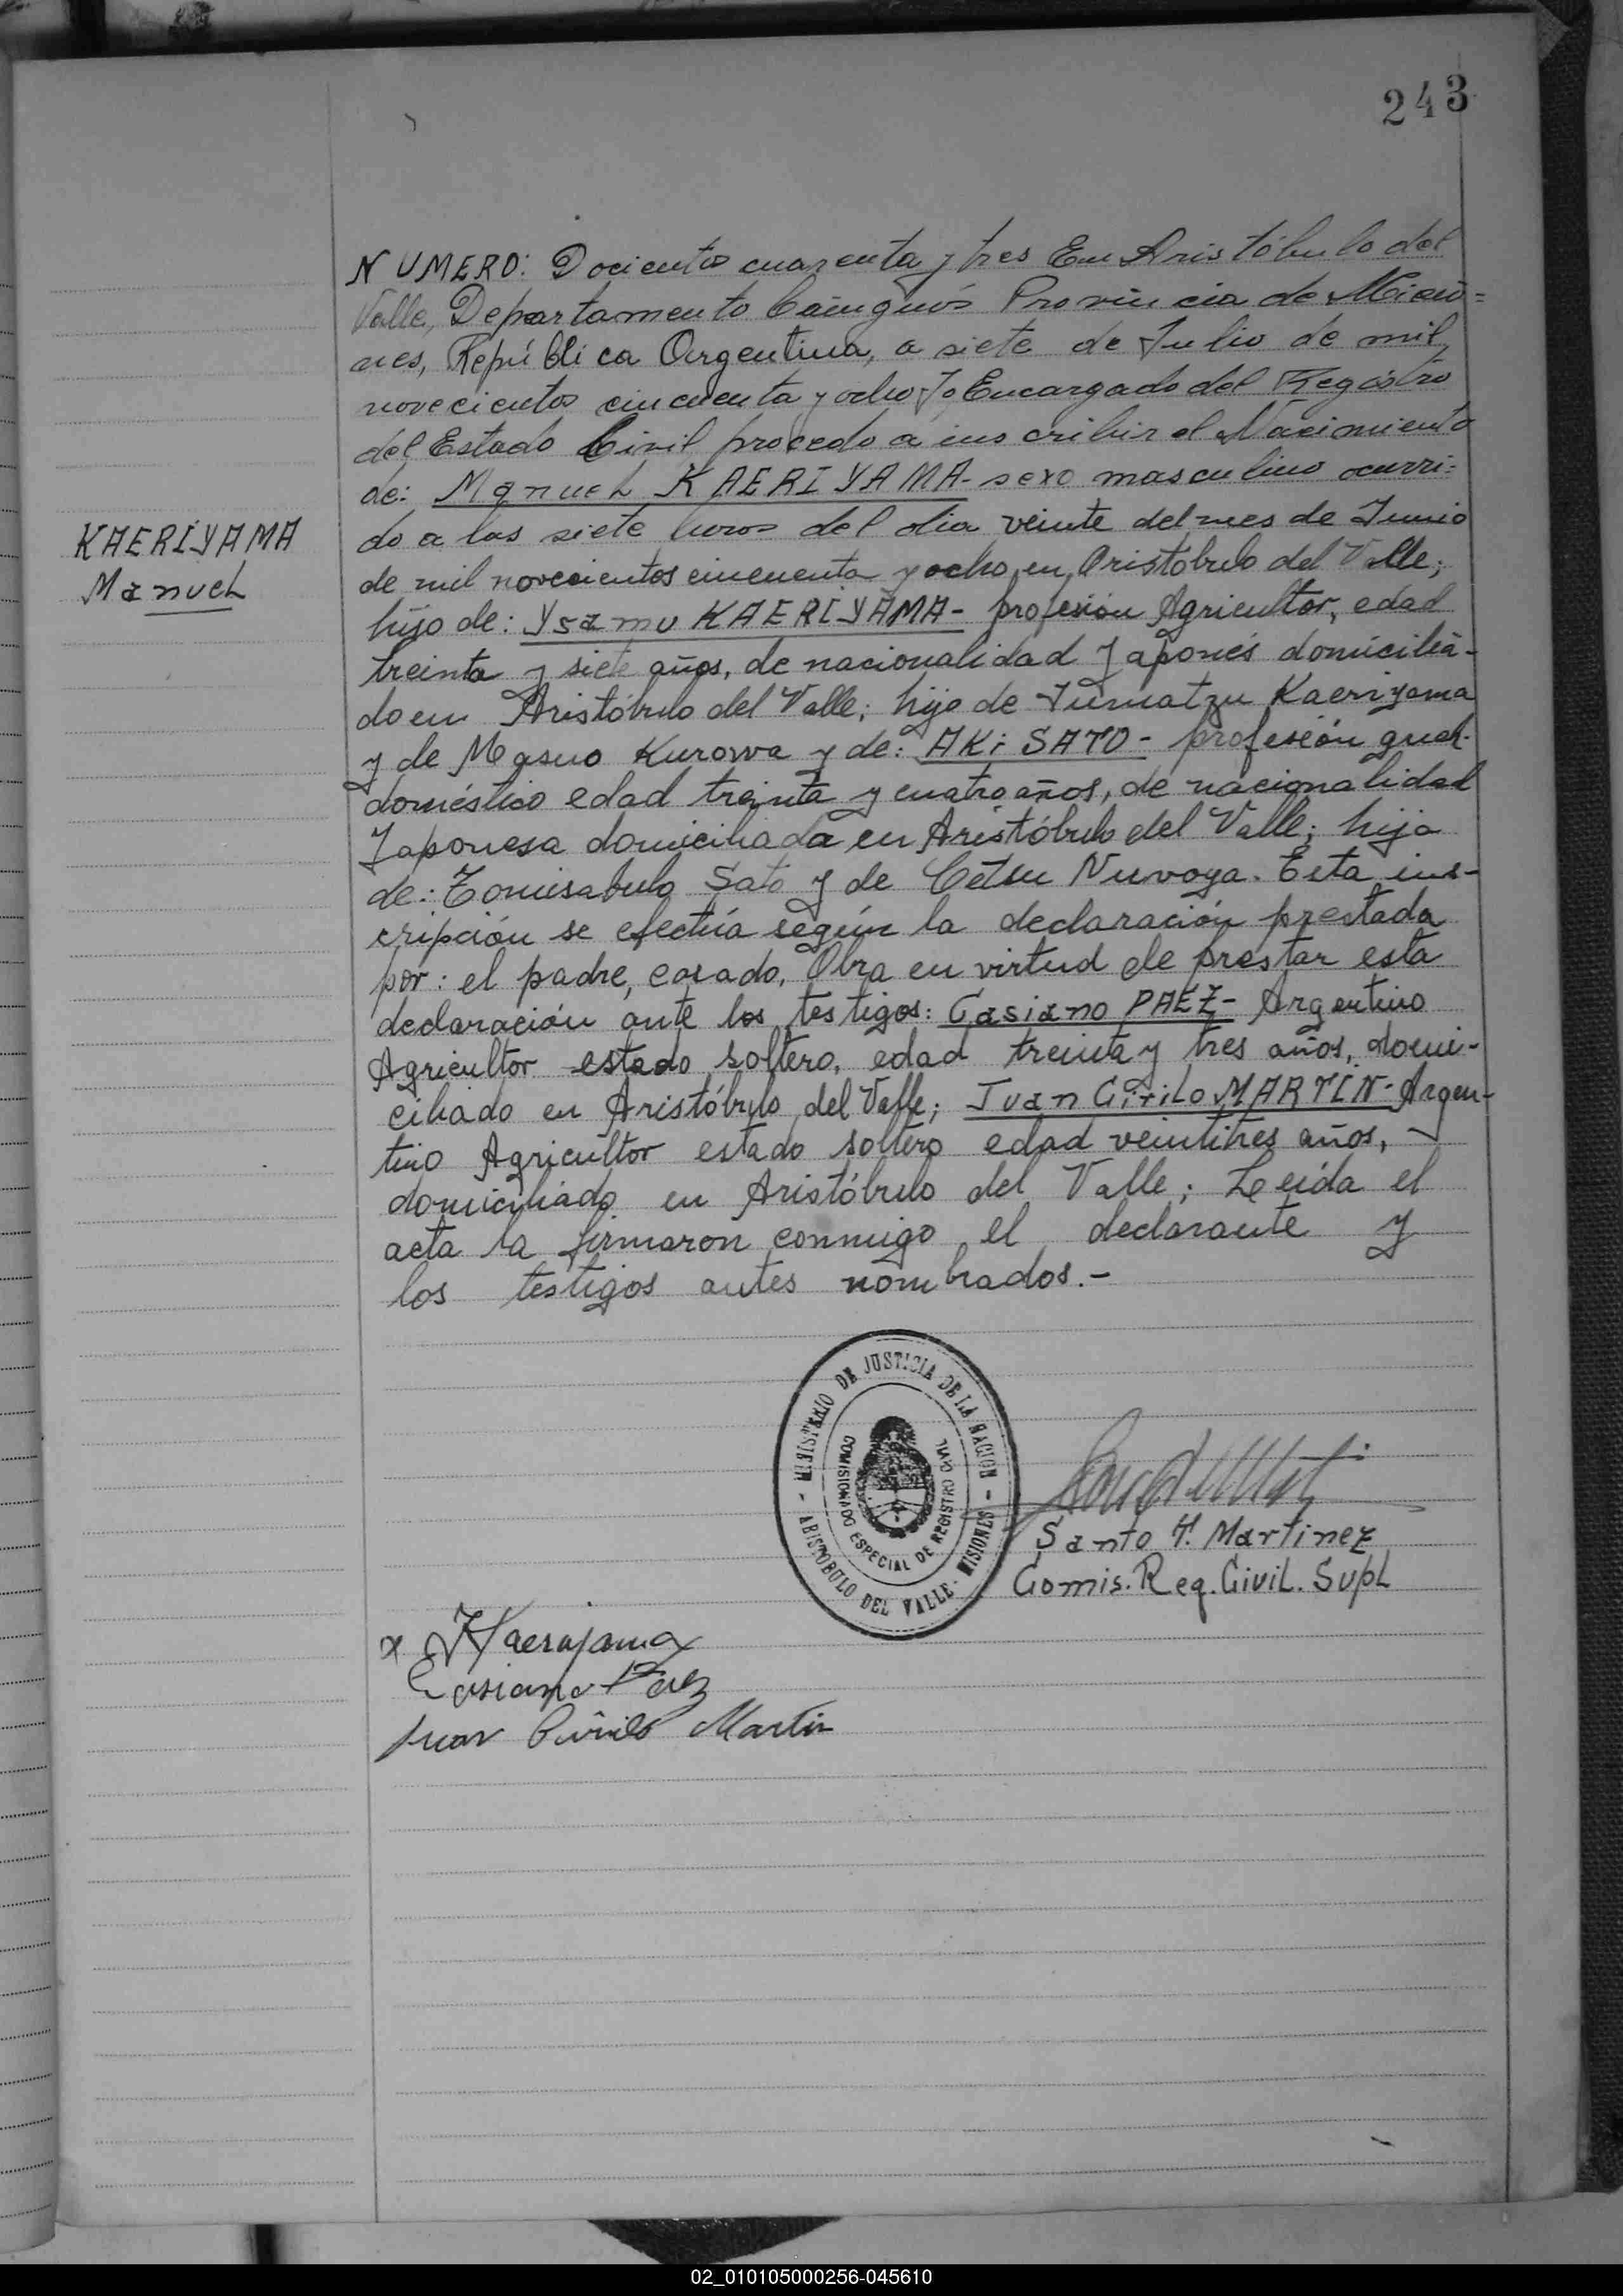 243
NUMERO: Docientos cuarenta y tres En Aristóbulo del
Valle, Departamento Cainguás Provincia de Misio=
nes, República Argentina, a siete de Julio de mil
novecientos cincuenta y ocho Yo, Encargado del Registro
del Estado Civil, procedo a inscribir el Nacimiento
de: Manuel KAERIYAMA- sexo masculino ocurri=
do a las siete horas del dia veinte del mes de Junio
KAERIYAMA
Manuel
de mil novecientos cincuenta y ocho, en Aristóbulo del Valle;
hijo de: Ysamu KAERIYAMA- profesión Agricultor, edad
treinta y siete años, de nacionalidad Japonés domicilia-
do en Aristóbulo del Valle; hijo de Jumatzu Kaeriyama
y de Masuo Kurowa y de: AKi SATO- profesión queh.
doméstico edad treinta y cuatro años, de nacionalidad
Japonesa domiciliada en Aristóbulo del Valle; hija
de: Tomisabulo Sato y de Cetsu Nuvoya. Esta ins-
cripción se efectúa según la declaración prestada
por: el padre, casado, Obra en virtud de prestar esta
declaración ante los testigos: Casiano PAEZ- Argentino
Agricultor estado soltero, edad treinta y tres años, domi-
ciliado en Aristóbulo del Valle; Juan Cirilo MARTÍN- Argen-
tino Agricultor estado soltero edad veintitres años, -
domiciliado en Aristóbulo del Valle; Leída el
acta la firmaron conmigo el declarante y
los testigos antes nombrados.-
- MINISTERIO DE JUSTICIA DE LA NACION -
COMISIONADO ESPECIAL DE REGISTRO CIVIL
ARISTOBULO DEL VALLE - MISIONES
Santo T. Martinez
Comis. Reg. Civil. Supl
x Kaeriyama
Casiano Paez
Juan Cirilo Martin
02_010105000256-045610